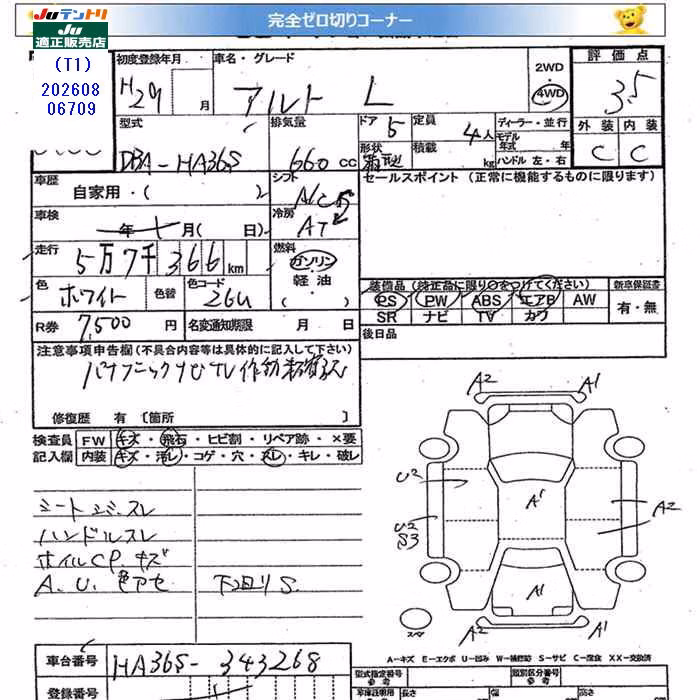 JUテントリ
適正販売店
(T1)
202608
06709
完全ゼロ切りコーナー
初度登録年月
H29 月
車名・グレード
アルト L
2WD
4WD
評価点
3.5
外装 内装
C C
型式
DBA-HA36S
排気量
660 cc
ドア 5
形状
定員 4人
積載 kg
ディーラー・並行
モデル年式 年
ハンドル 左・右
車歴
自家用・( )
シフト
冷房
AT
セールスポイント (正常に機能するものに限ります)
車検
年 月( 日)
走行
5万7千366km
燃料
ガソリン
軽油
( )
色
ホワイト
色替
色コード
26U
R券 7,500 円
名変通知期限 月 日
装備品 (純正品に限り○をつけてください)
PS PW ABS エアB AW
SR ナビ TV カワ
新車保証書
有・無
後日品
注意事項申告欄 (不具合内容等は具体的に記入して下さい)
修復歴 有 [箇所 ]
検査員
記入欄
FW キズ・飛石・ヒビ割・リペア跡・×要
内装 キズ・汚レ・コゲ・穴・スレ・キレ・破レ
シートユミ、スレ
ハンドルスレ
ホイルCP、キズ
A、U、色アセ 下回りS
A2 A1
U2
A1
A2
U2
S3
A1
スペア
A2 A1
A-キズ E-エクボ U-凹み W-補修跡 S-サビ C-腐食 XX-交換済
車台番号 HA36S-343268
登録番号
型式指定番号
参考
類別区分番号
参考
長さ 幅 高さ